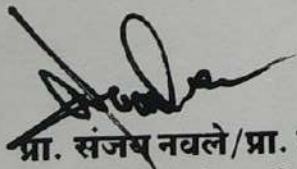 प्रा. संजय नवले/प्रा.